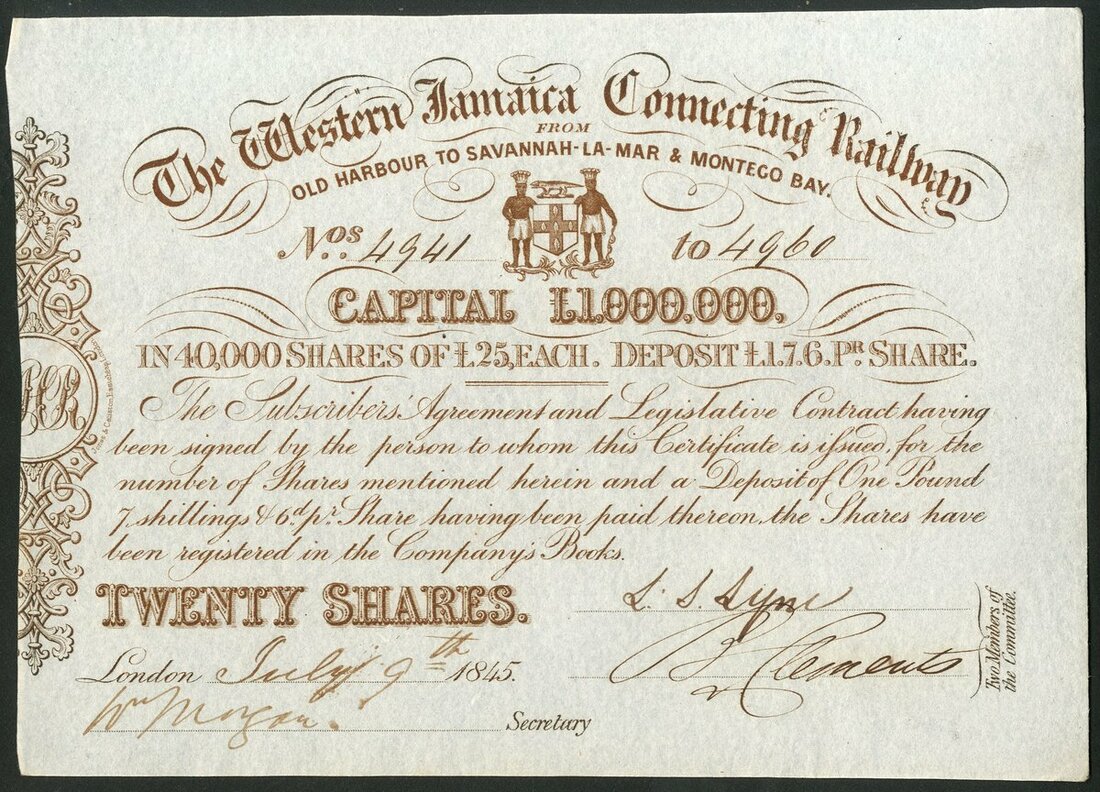 The Western Jamaica Connecting Railway
FROM
OLD HARBOUR TO SAVANNAH-LA-MAR & MONTEGO BAY.
Nos. 4941 to 4960
CAPITAL £1.000.000.
IN 40,000 SHARES OF £25, EACH. DEPOSIT £1.7.6. PR. SHARE.
The Subscribers' Agreement and Legislative Contract having
been signed by the person to whom this Certificate is issued, for the
number of Shares mentioned herein and a Deposit of One Pound
7, shillings & 6d. pr. Share having been paid thereon, the Shares have
been registered in the Company's Books.
TWENTY SHARES.
Clements
Two Members of
the Committee.
London July 9th 1845.
Wm Morgan. Secretary